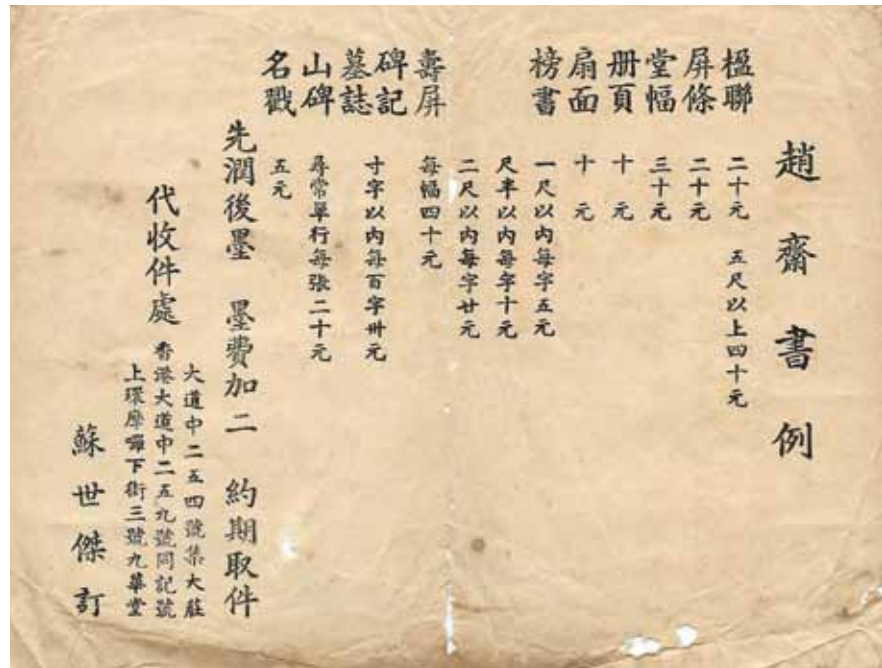 趙齋書例
楹聯 二十元 五尺以上四十元
屏條 二十元
堂幅 三十元
册頁 十元
扇面 十元
榜書 一尺以內每字五元
尺半以內每字十元
二尺以內每字廿元
壽屏 每幅四十元
碑記
墓誌 寸字以內每百字卅元
山碑 尋常單行每張二十元
名戳 五元
先潤後墨 墨費加二 約期取件
代收件處
大道中二五四號集大莊
香港大道中二五九號同記號
上環摩囉下街三號九華堂
蘇世傑訂